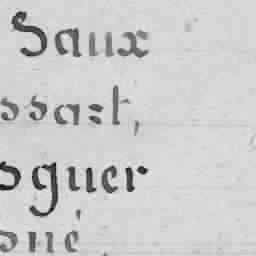 Saux
ssart,
sguer
sné